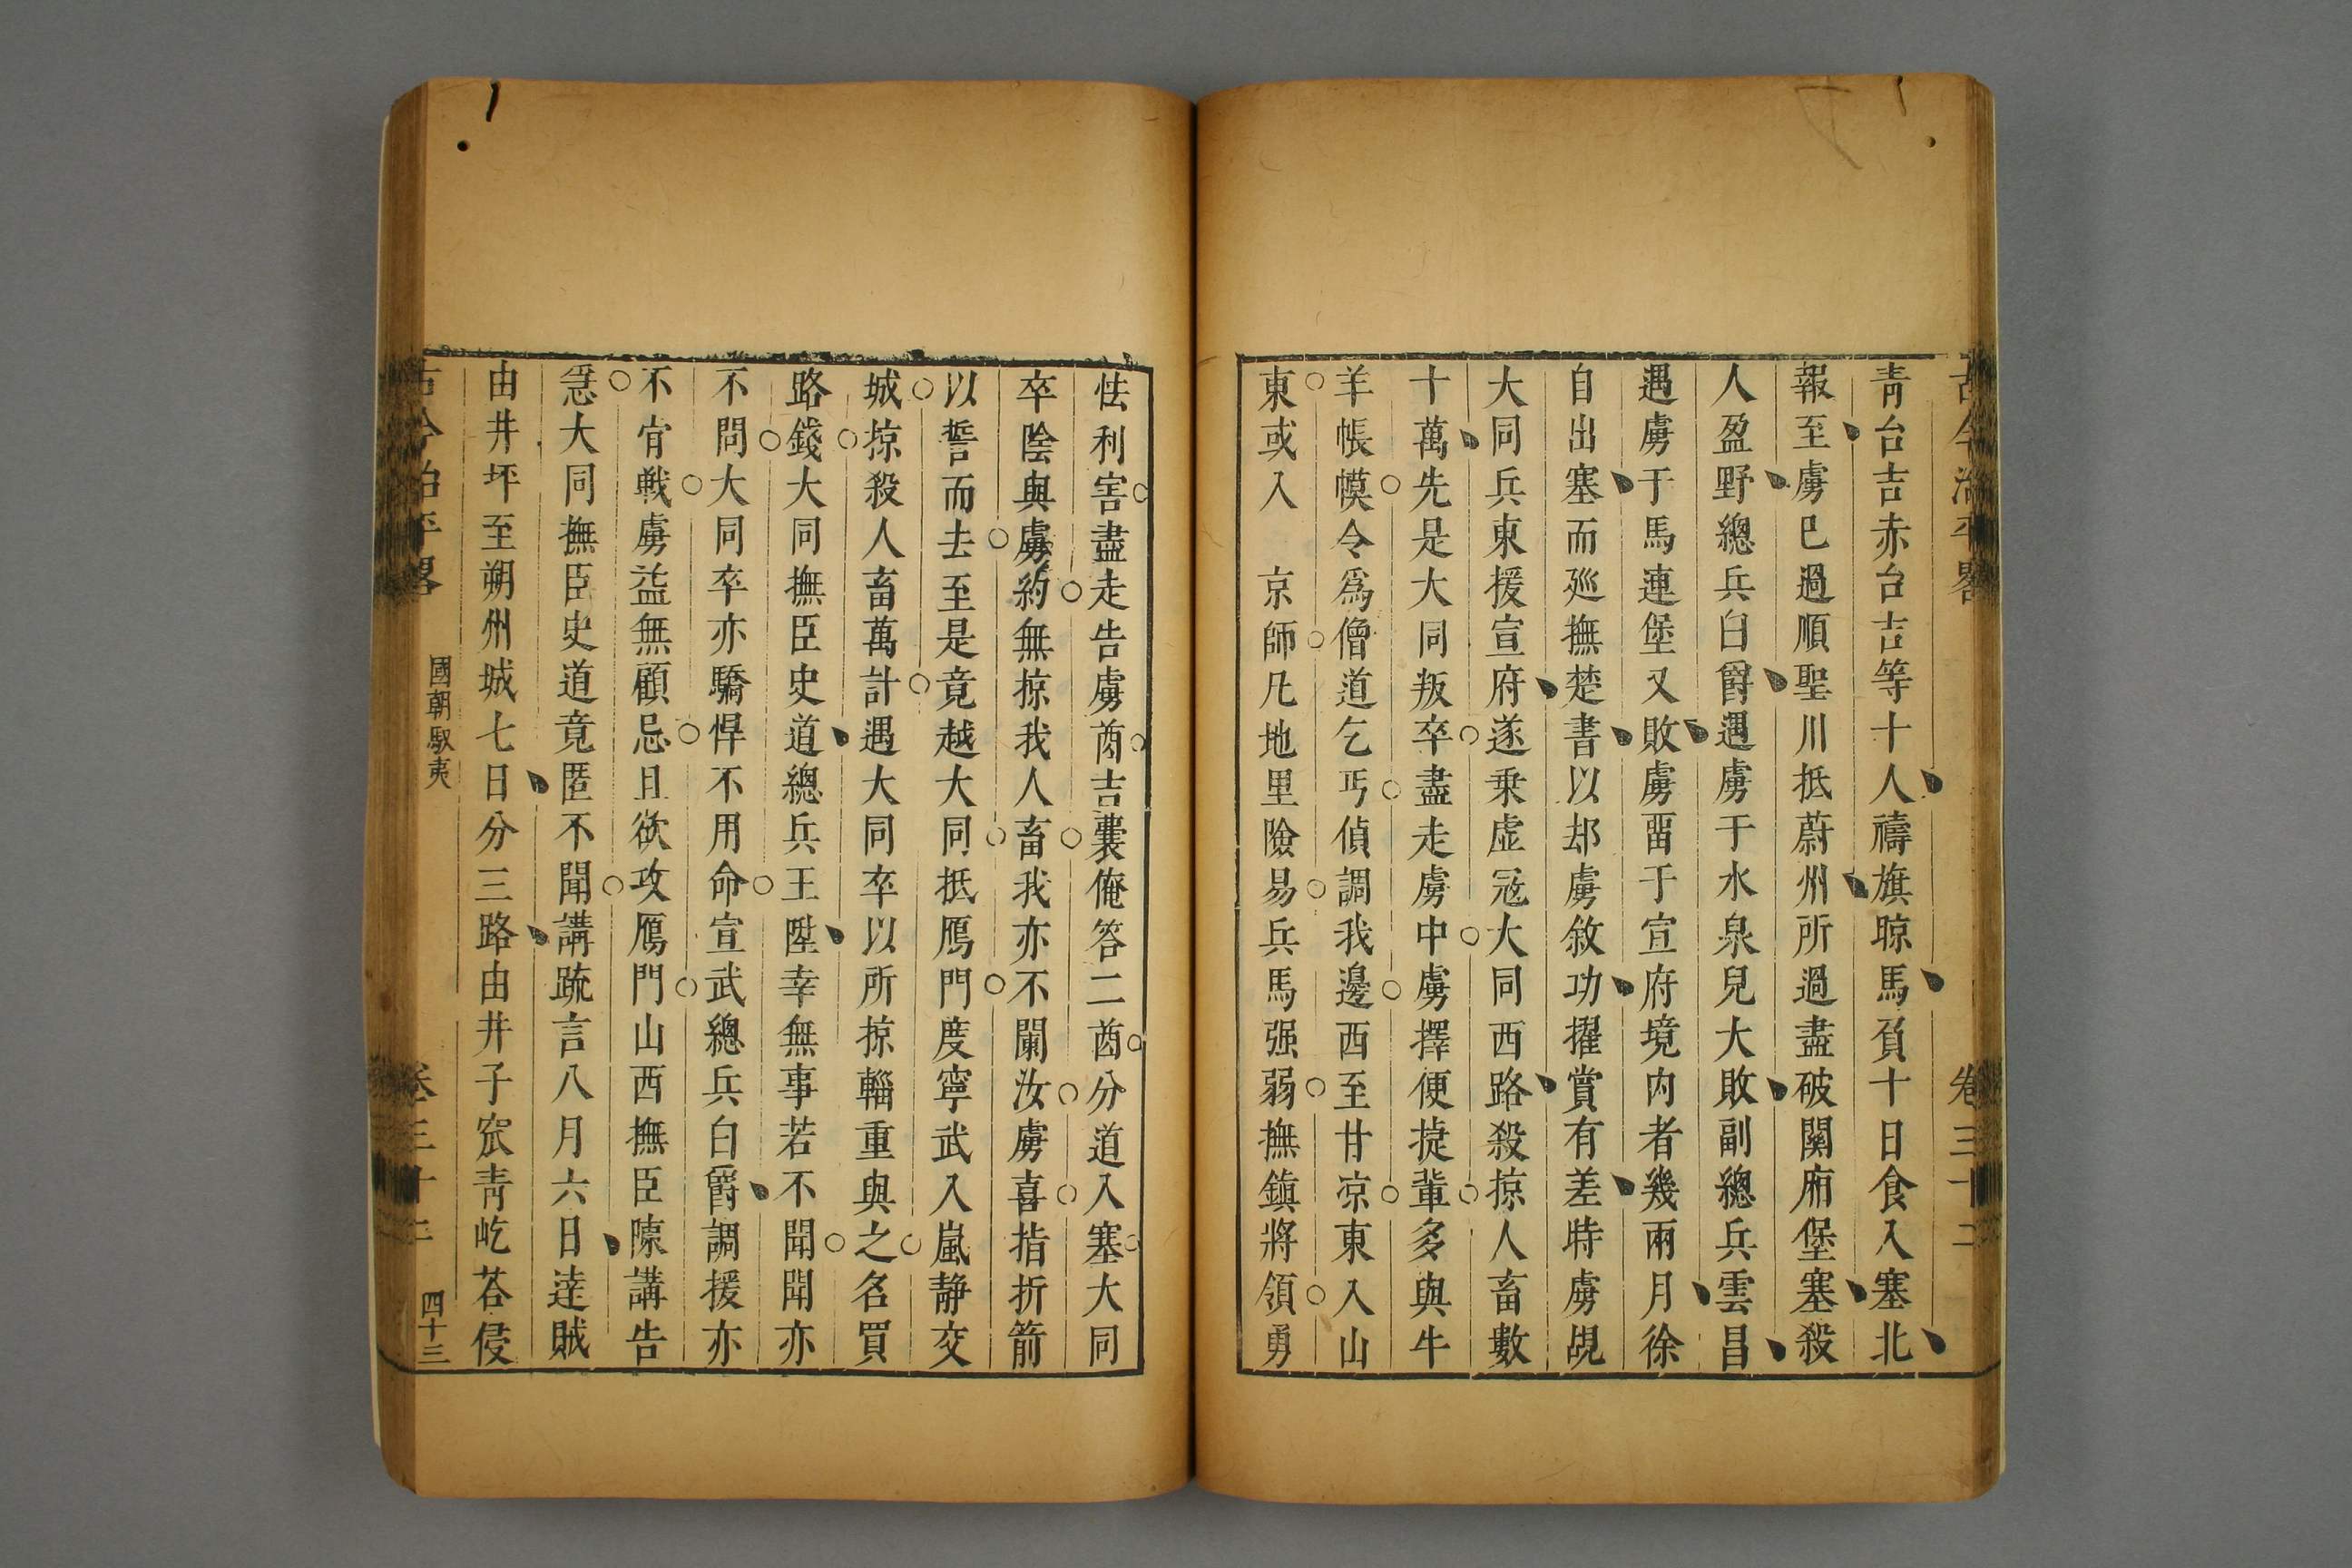 古今治平畧
卷三十二
青台吉赤台吉等十人禱旗晾馬負十日食入塞北
報至虜已過順聖川抵蔚州所過盡破關廂堡塞殺
人盈野總兵白爵遇虜于水泉兒大敗副總兵雲昌
遇虜于馬連堡又敗虜畱于宣府境內者幾兩月徐
自出塞而廵撫楚書以却虜敘功擢賞有差時虜覘
大同兵東援宣府遂乗虛冦大同西路殺掠人畜數
十萬先是大同叛卒盡走虜中虜擇便㨗輩多與牛
羊帳幙令爲僧道乞丐偵調我邊西至甘凉東入山
東或入京師凡地里險易兵馬强弱撫鎮將領勇
怯利害盡走告虜酋吉囊俺答二酋分道入塞大同
卒陰與虜約無掠我人畜我亦不闌汝虜喜指折箭
以誓而去至是竟越大同抵鴈門度寧武入嵐静交
城掠殺人畜萬計遇大同卒以所掠輜重與之名買
路錢大同撫臣史道總兵王陞幸無事若不聞聞亦
不問大同卒亦驕悍不用命宣武總兵白爵調援亦
不肯戰虜益無顧忌且欲攻鴈門山西撫臣陳講告
急大同撫臣史道竟匿不聞講疏言八月六日逹賊
由井坪至朔州城七日分三路由井子窊青屹荅侵
古今治平畧
國朝馭夷
卷三十二
四十三